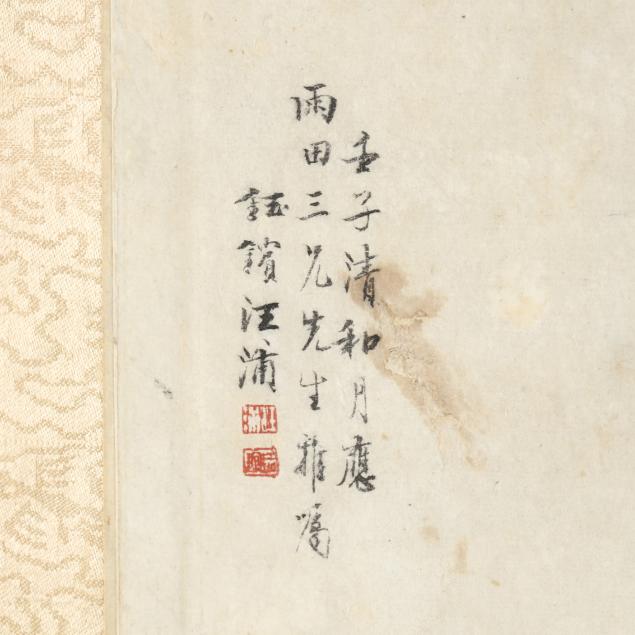 壬子清和月應
雨田三兄先生雅囑
鈺賓汪浦
汪浦